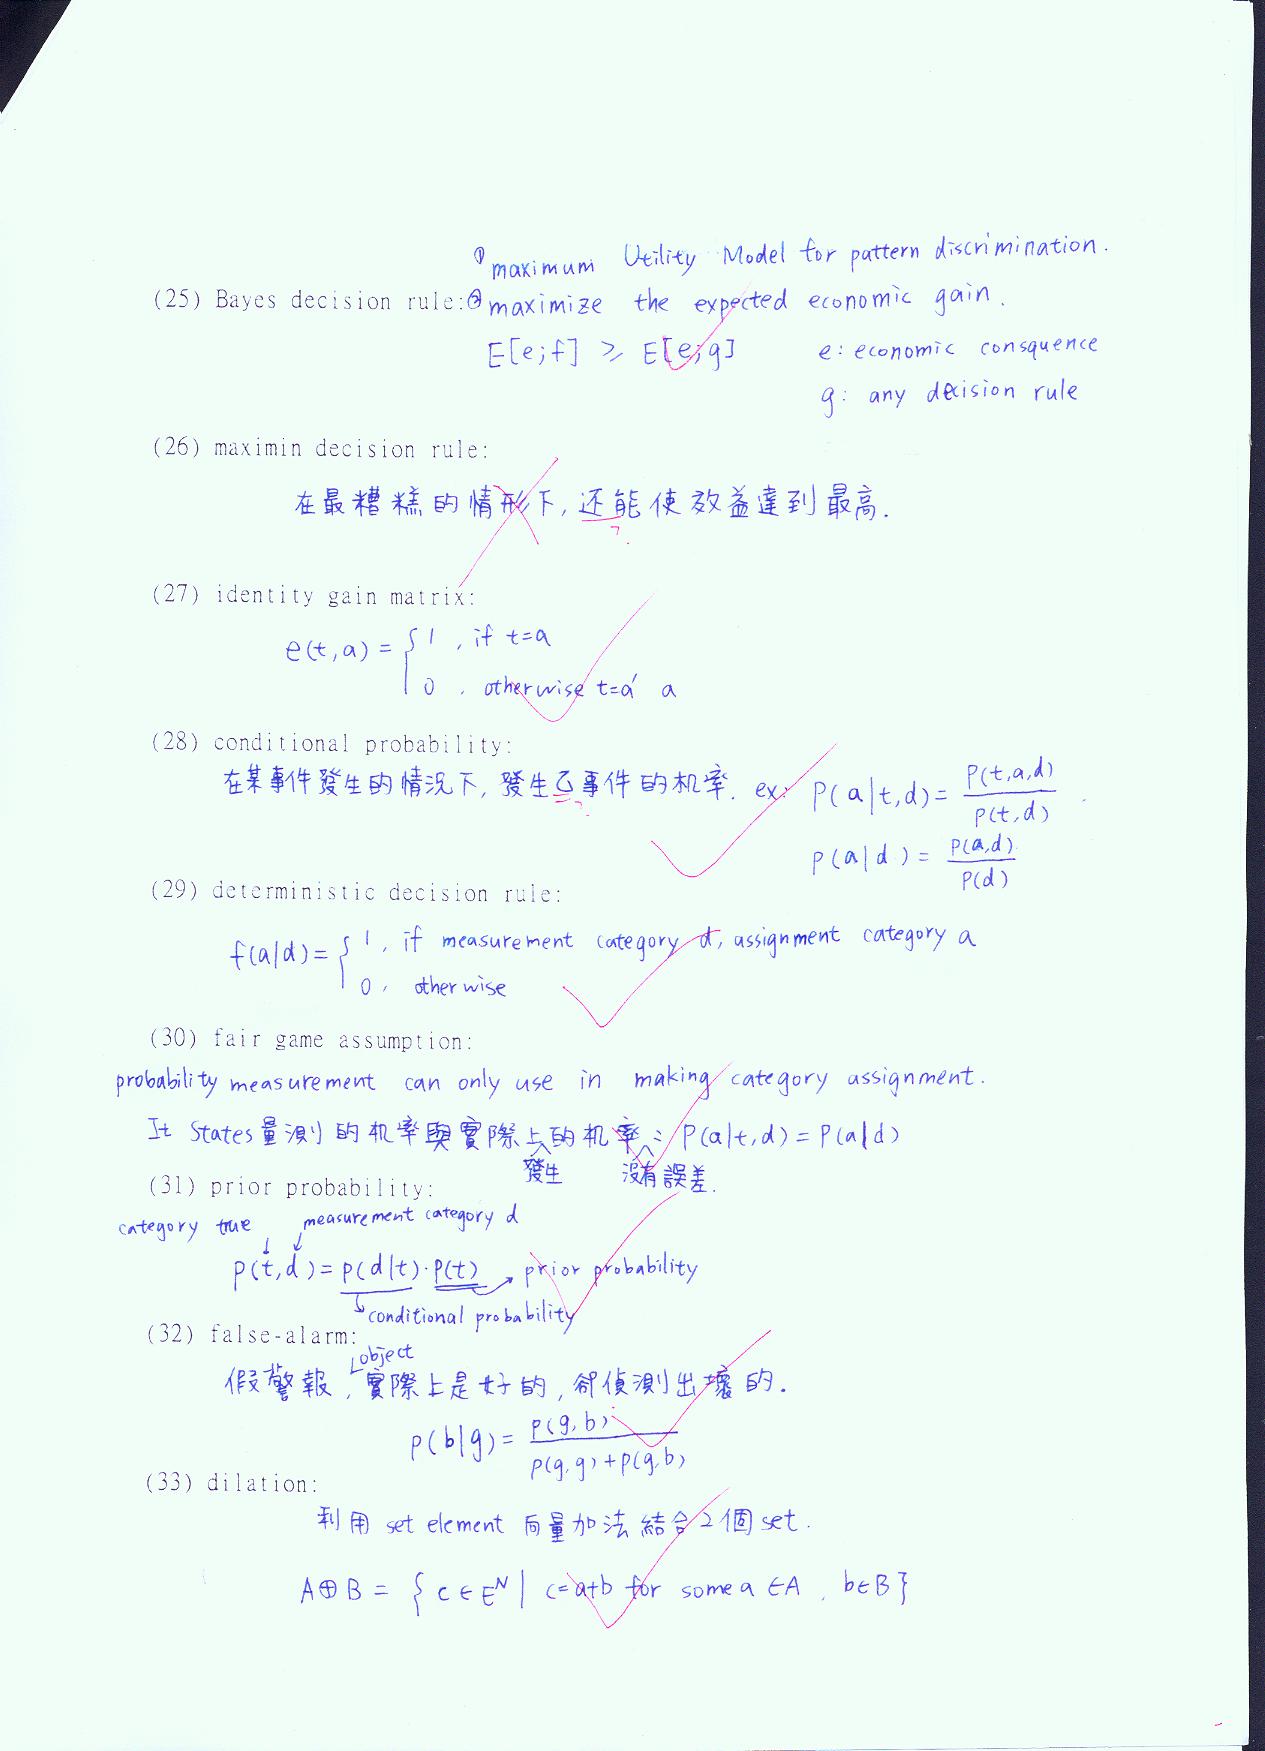 ① maximum Utility Model for pattern discrimination.
(25) Bayes decision rule: ② maximize the expected economic gain.
E[e;f] ≥ E[e;g] e: economic consquence
g: any decision rule
(26) maximin decision rule:
在最糟糕的情形下, 还能使效益達到最高.
?
(27) identity gain matrix:
e(t,a) = { 1 , if t=a
0 , otherwise t=a' a
(28) conditional probability:
在某事件發生的情況下, 發生乙事件的机率. ex: P(a|t,d) = P(t,a,d) / P(t,d)
P(a|d) = P(a,d) / P(d)
(29) deterministic decision rule:
f(a|d) = { 1, if measurement category d, assignment category a
0, otherwise
(30) fair game assumption:
probability measurement can only use in making category assignment.
It States量測的机率與實際上的机率: P(a|t,d) = P(a|d)
發生 沒有誤差.
(31) prior probability:
category true measurement category d
P(t,d) = P(d|t)·P(t) → prior probability
conditional probability
(32) false-alarm:
object
假警報, 實際上是好的, 卻偵測出壞的.
P(b|g) = P(g,b) / P(g,g)+P(g,b)
(33) dilation:
利用 set element 向量加法結合2個set.
A⊕B = { c ∈ E^N | c=a+b for some a ∈ A , b∈B }